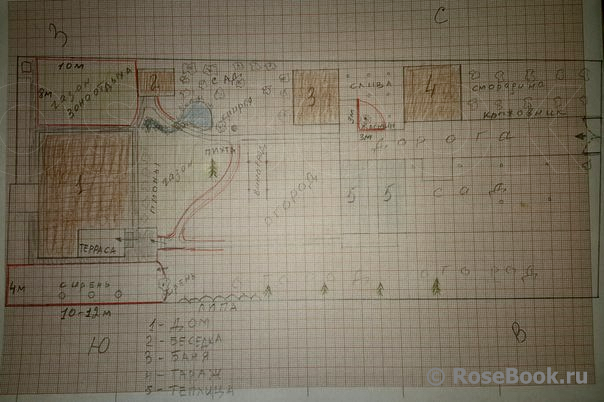 С
З
10м
8м
газон
зона отдыха
2
САД
3
СЛИВА
4
смородина
крыжовник
3м
3м
дорога
1
пионы
ПИХТА
газон
виноград
огород
5
5
сад
ТЕРРАСА
4м
сирень
10-12м
сирень
ЛИПА
огород
огород
Ю
В
1 - ДОМ
2 - БЕСЕДКА
3 - БАНЯ
4 - ГАРАЖ
5 - ТЕПЛИЦА
© RoseBook.ru